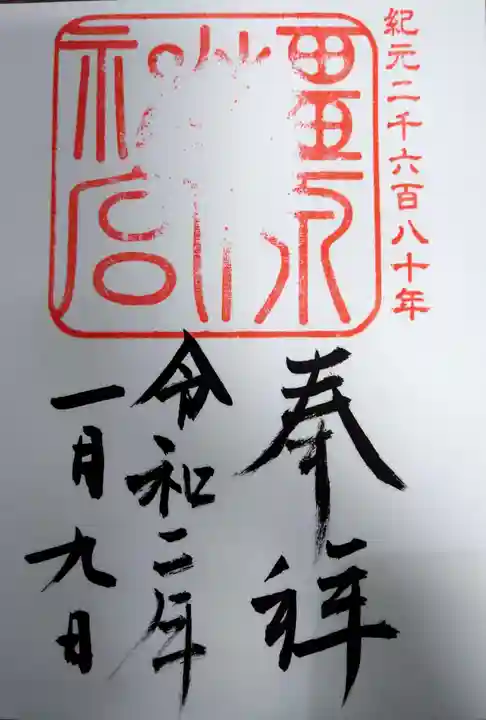 紀元二千六百八十年
奉拝
令和二年
一月九日